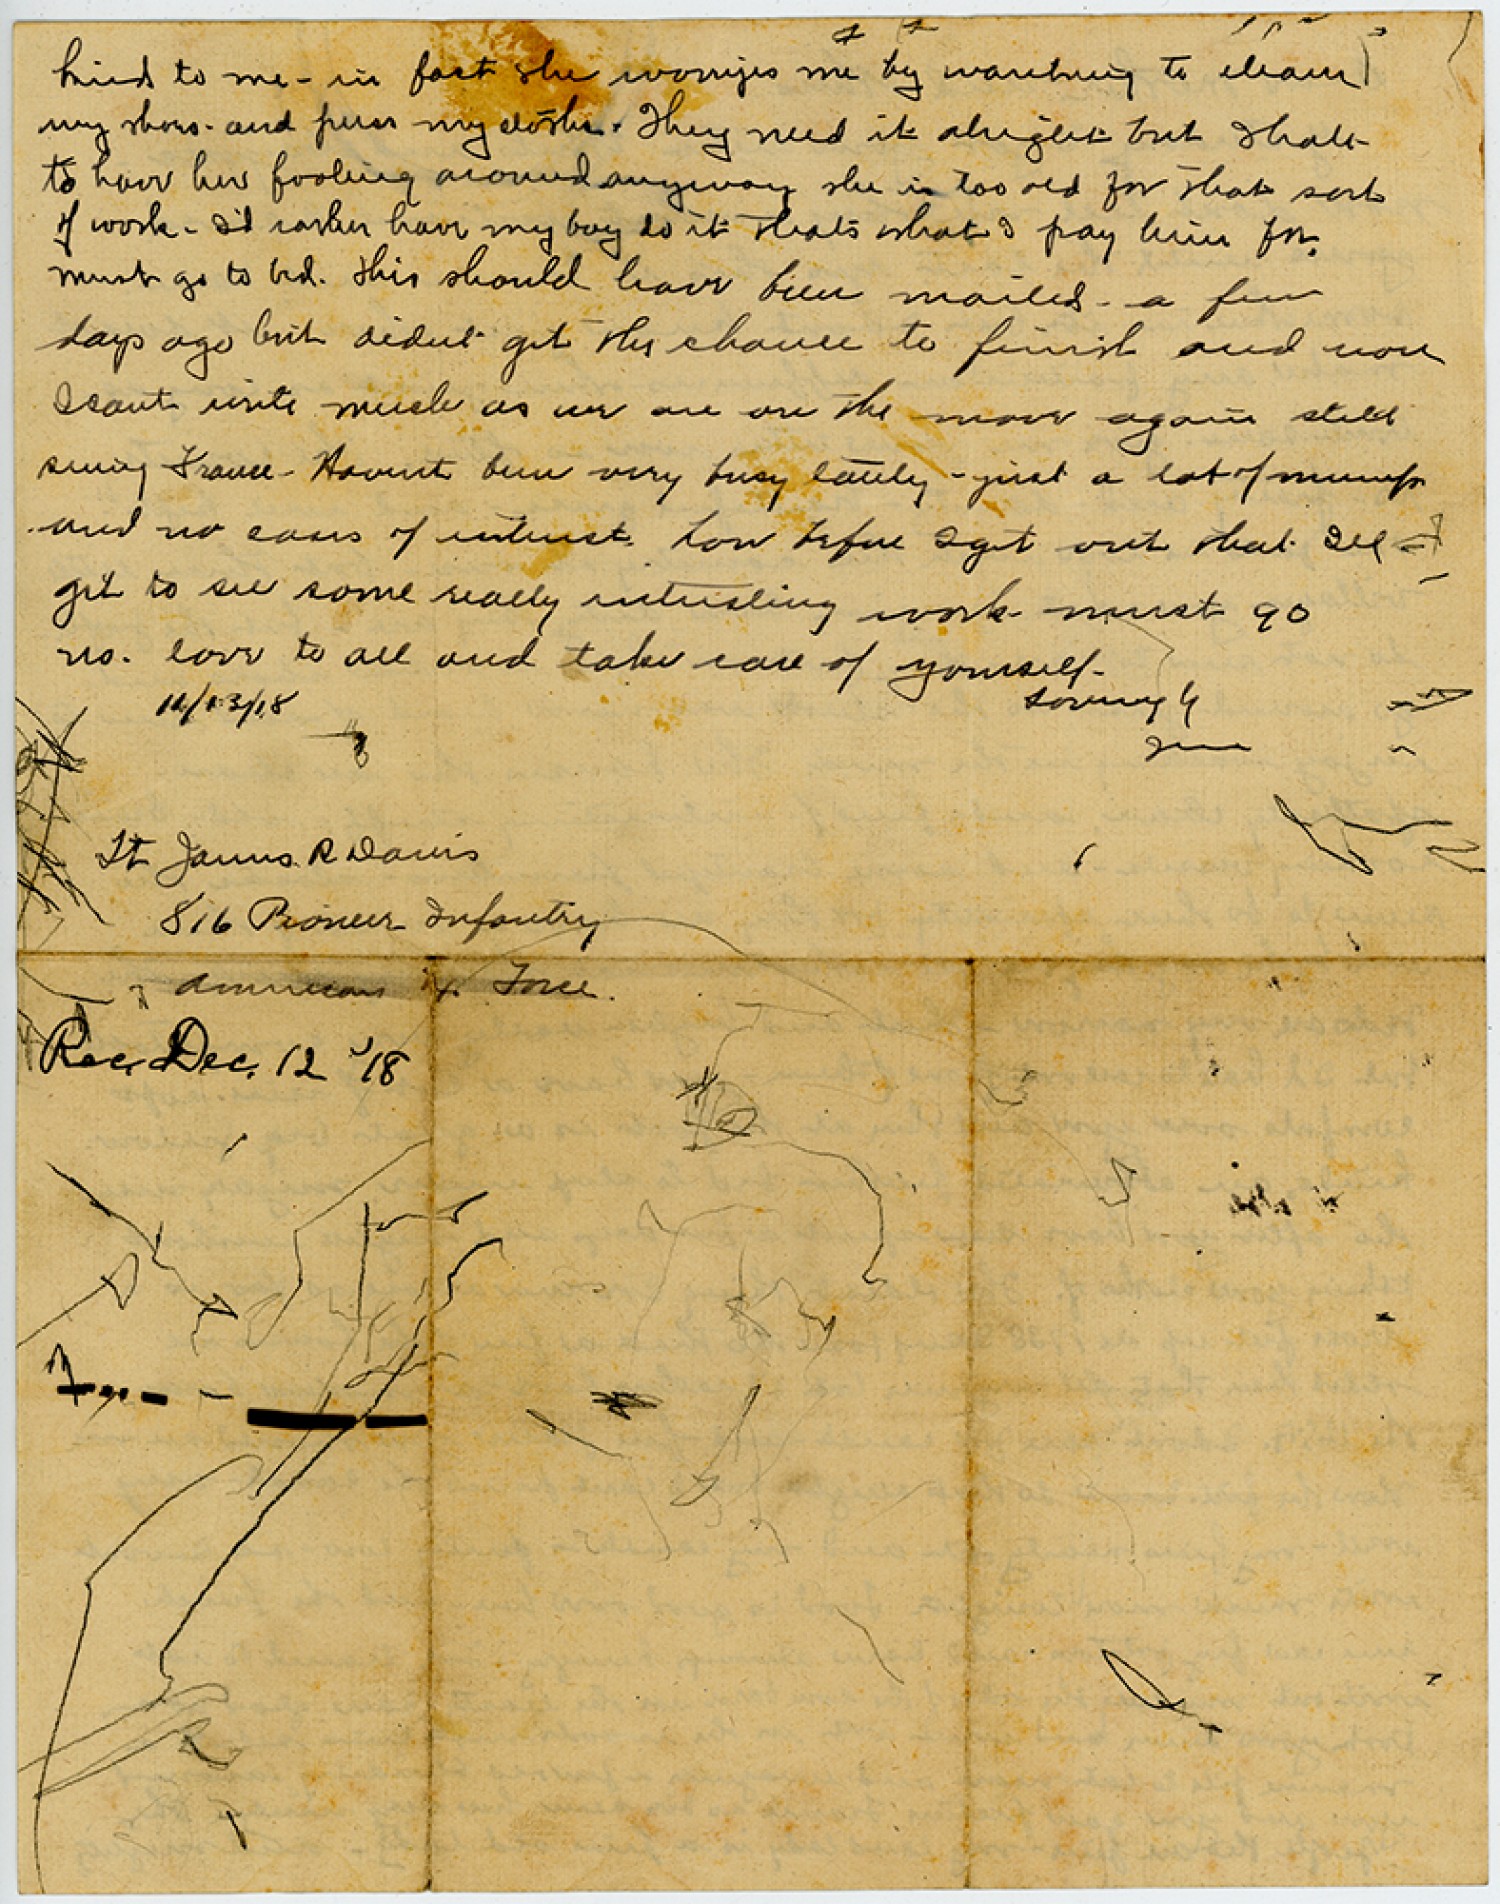 kind to me - in fact she worries me by wanting to clean
my shoes - and press my clothes. They need it alright but I hate
to have her fooling around anyway she is too old for that sort
of work - I'd rather have my boy do it thats what I pay him for.
must go to bed. This should have been mailed - a few
days ago but didnt get the chance to finish and now
I cant write much as we are on the move again still
seeing France - Havent been very busy lately - just a lot of mumps
and no cases of interest. before I get out that Ill
get to see some really interesting work - must go
no. love to all and take care of yourself -
11/13/18
Lovingly
Lt James R Davis
816 Pioneer Infantry
American Force.
Rec. Dec. 12 '18